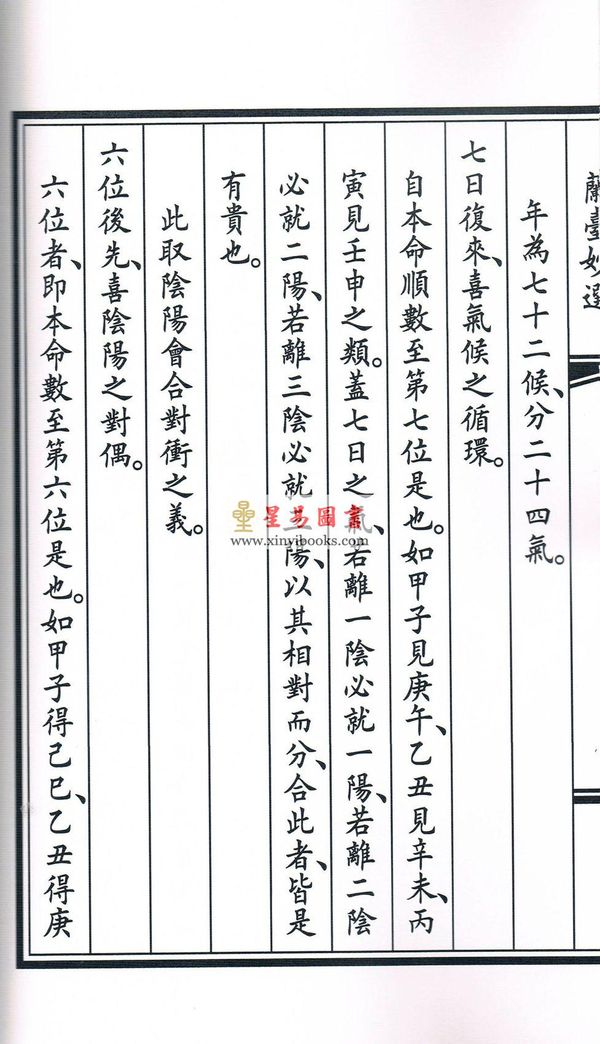 蘭臺妙選
年為七十二候、分二十四氣。
七日復來、喜氣候之循環。
自本命順數至第七位是也。如甲子見庚午、乙丑見辛未、丙
寅見壬申之類。蓋七日之氣、若離一陰必就一陽、若離二陰
必就二陽、若離三陰必就三陽、以其相對而分、合此者、皆是
有貴也。
此取陰陽會合對衝之義。
六位後先、喜陰陽之對偶。
六位者、即本命數至第六位是也。如甲子得己巳、乙丑得庚
星易圖書
www.xinyibooks.com